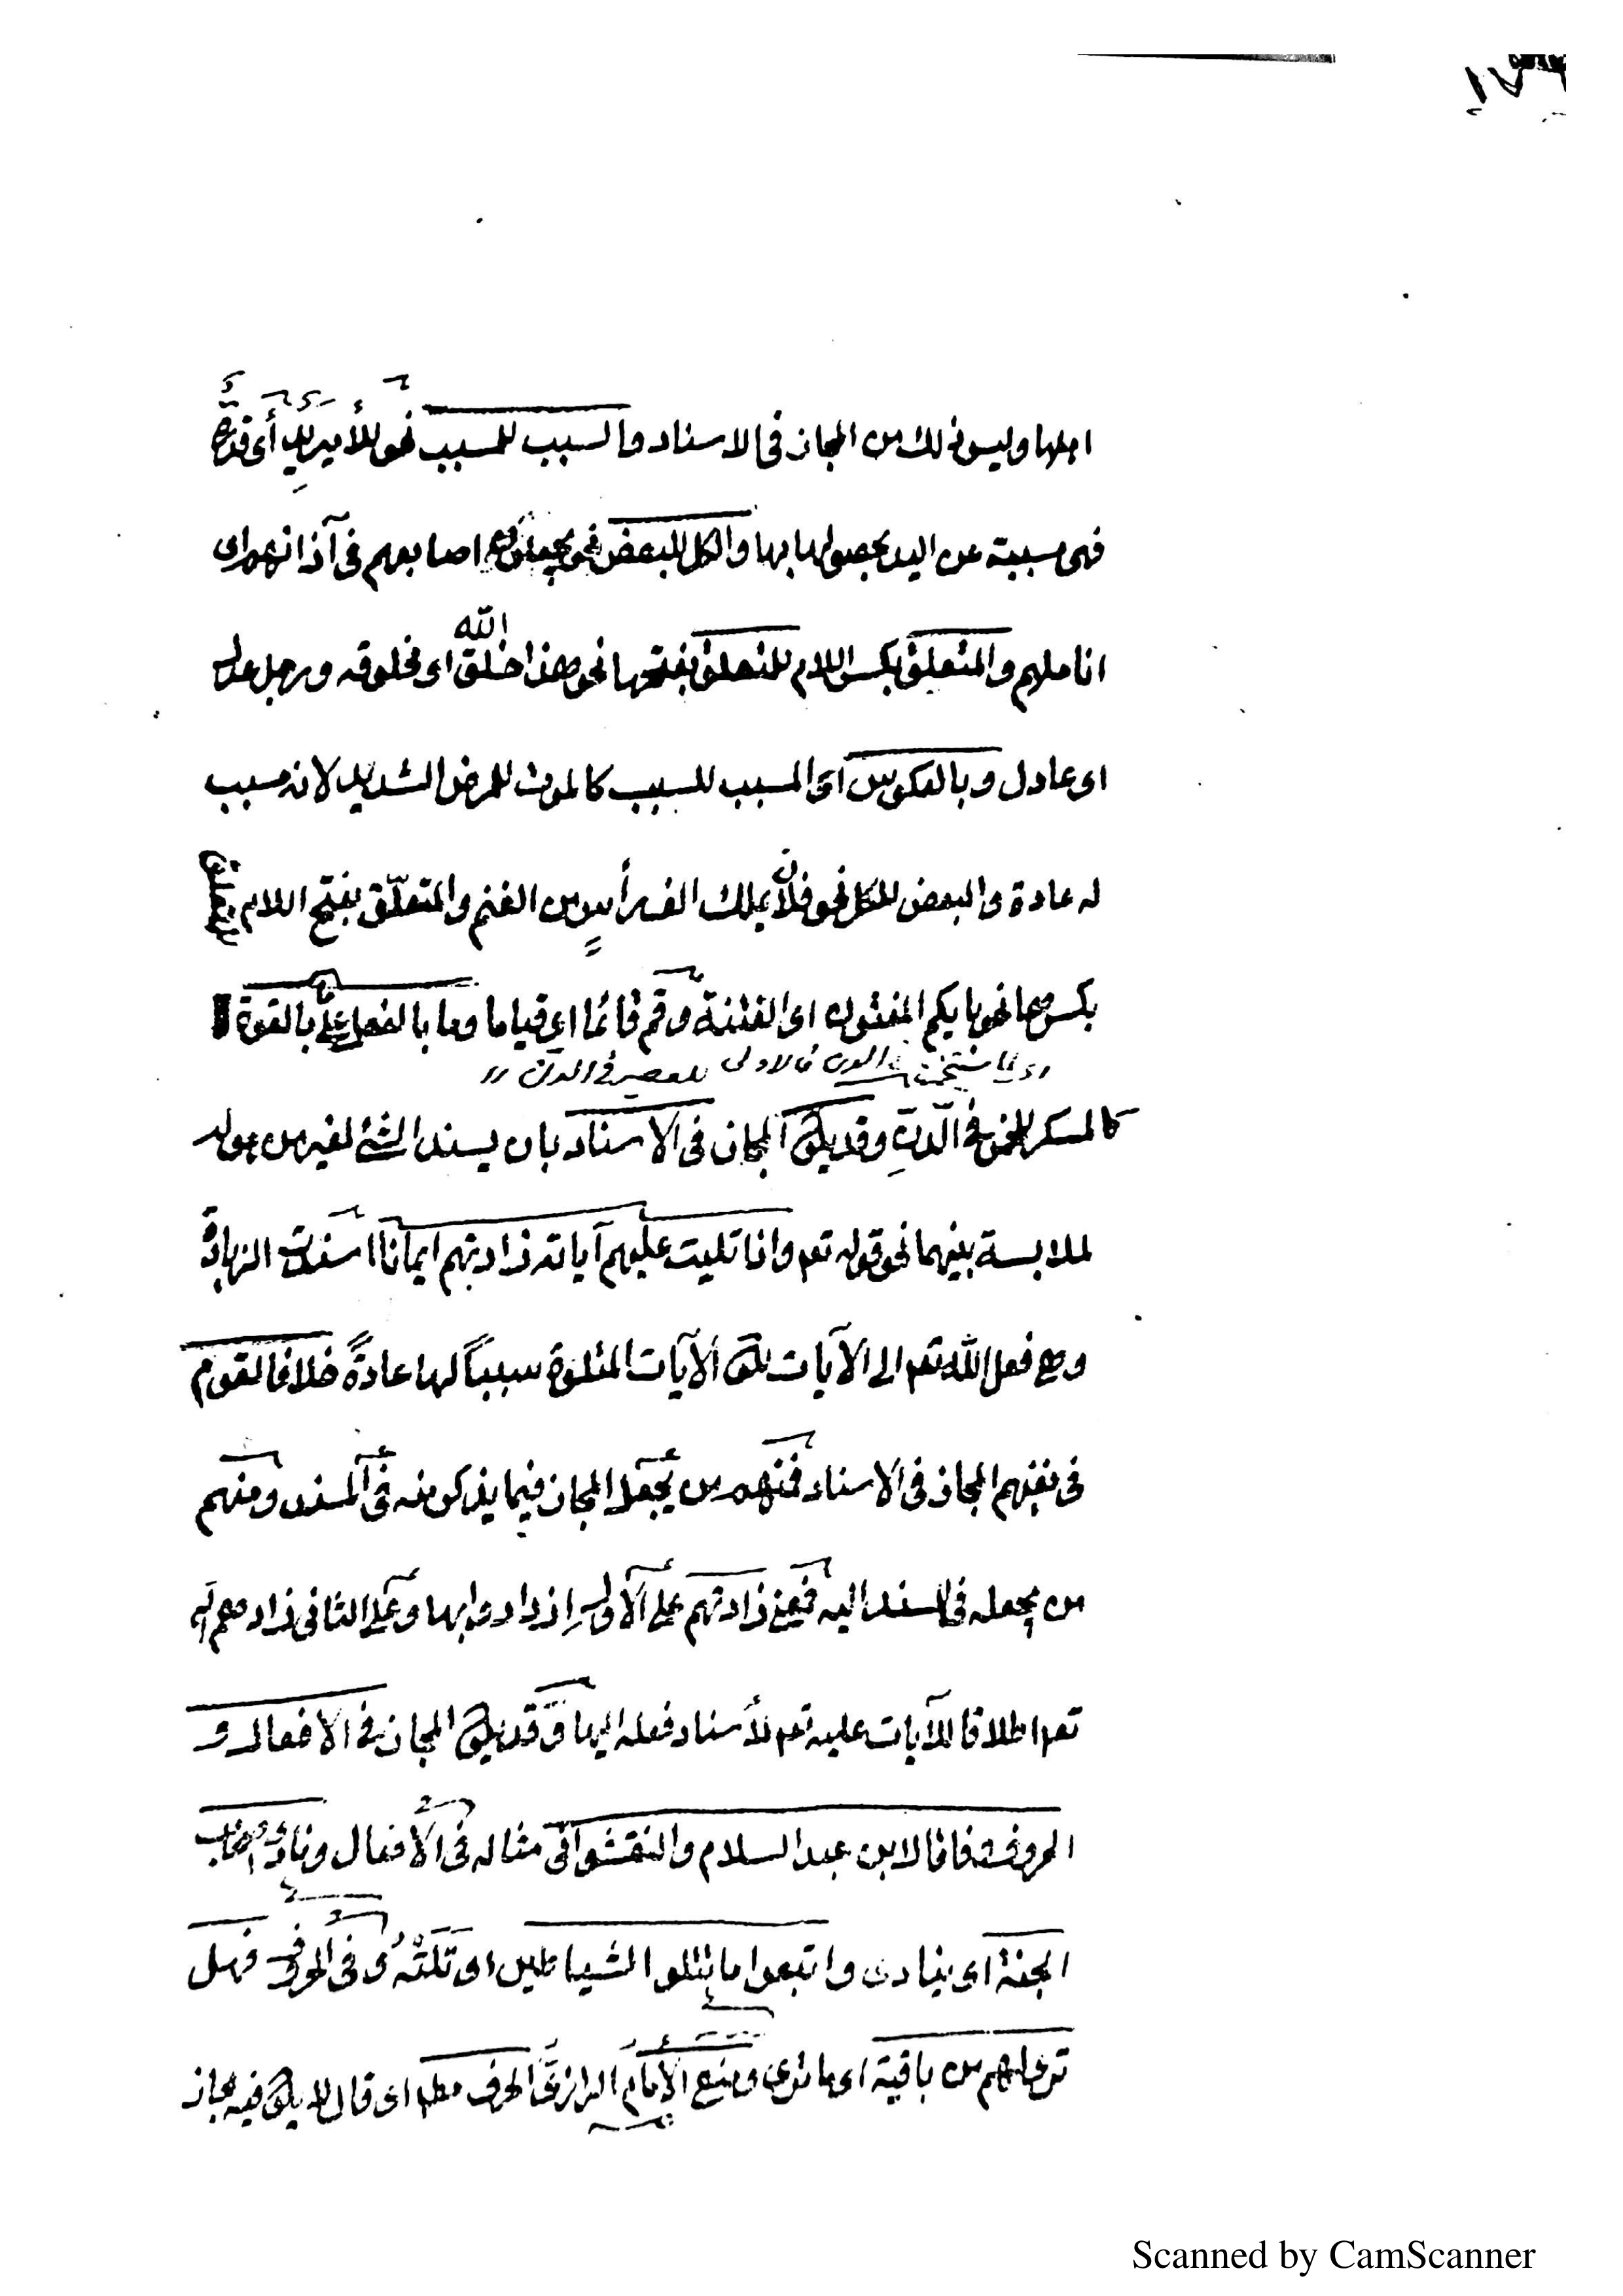 ١٧٩
اهلها وليس ذلك من المجاز في الاسناد والسبب للمسبب نحو للأمير يد أى قدرة
فهى مسببة عن اليد بحصولها بها والكل للبعض نحو يجعلون اصابعهم في آذانهم اى
اناملهم والمتعلق بكسر اللام للمتعلق بفتحها نحو هذا خلق الله اى مخلوقه ورجل عدل
اى عادل وبالعكوس اى المسبب للسبب كالموت للمرض الشديد لانه مسبب
له عادة والبعض للكل نحو فلان يملك الف رأس من الغنم والمتعلّق بفتح اللام
بكسرها نحو بايكم المفتون اى الفتنة وقم قائما اى قياما وما بالفعل على ما بالقوة
كالمسكر للخمر في الدنّ وقد يكون المجاز في الاسناد بان يسند الشئ لغير من هو له
لملابسة بينهما نحو قوله تعم واذا تليت عليهم آياته زادتهم ايمانا اسندت الزيادة
وهى فعل الله تعم الى الآيات لكون الآيات المتلوة سبباً لها عادةً خلافا لقوم
في نفيهم المجاز في الاسناد فمنهم من يجعل المجاز فيما يذكر منه في المسند ومنهم
من يجعله في المسند اليه فمعنى زادتهم على الاول ازدادوا بها وعلى الثانى زادهم الله
تعم اطلاقا للآيات عليه تعم لاسناد فعله اليها وقد يكون المجاز في الافعال و
الحروف وفاقا لابن عبد السلام والنقشوانى مثاله في الأفعال ونادى اصحاب
الجنة اى ينادى واتبعوا ما تتلو الشياطين اى تلته وفى الحرف فهل
ترى لهم من باقية اى ما ترى ومنع الأمام الرازى الحرف مطم اى قال لا يكون فيه مجاز
Scanned by CamScanner